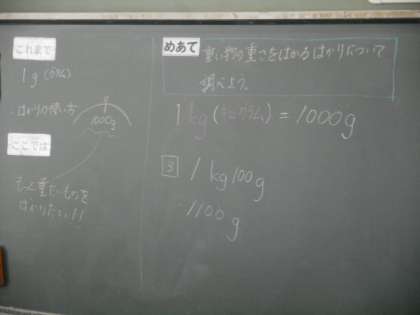 これまで
1g(グラム)
・はかりの使い方
1000g
ここでは
もっと重たいものを
はかりたい!!
めあて
重い物の重さをはかるはかりについて
調べよう。
1kg(キログラム)=1000g
3 1kg100g
1100g